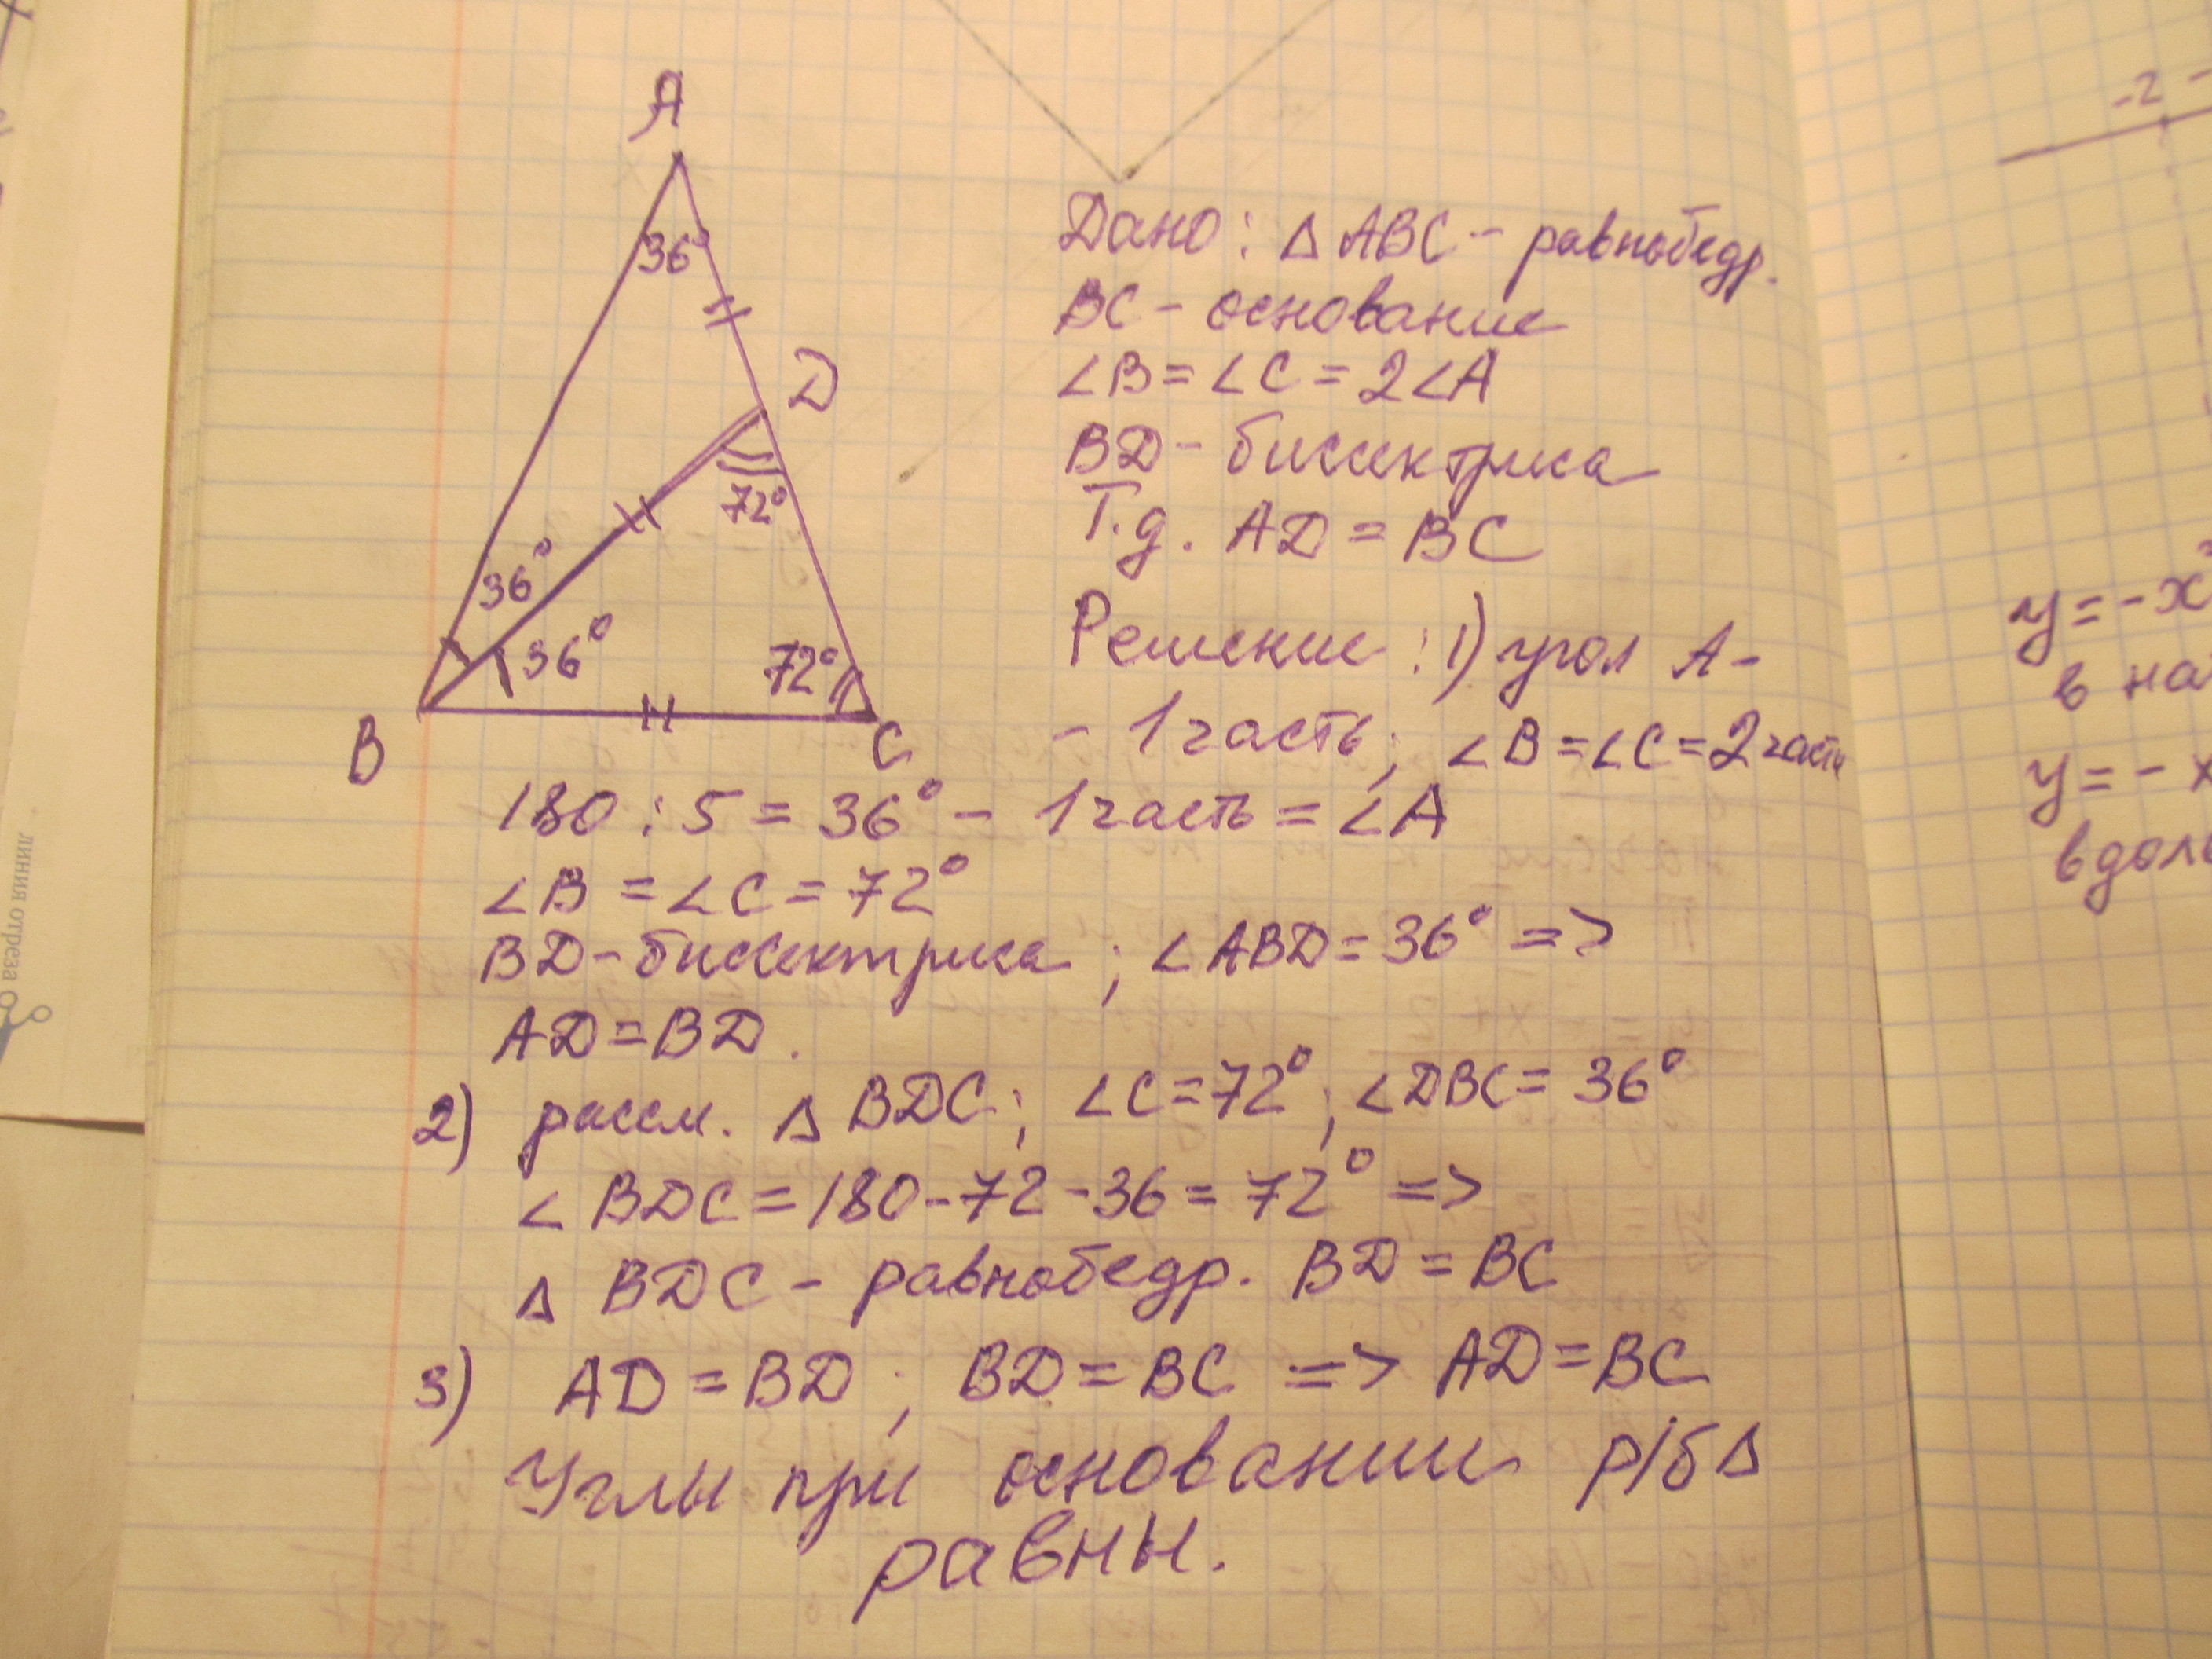 A
36°
D
72°
36°
36°
72°
B
C
Дано: Δ ABC - равнобедр.
BC - основание
∠B = ∠C = 2∠A
BD - биссектриса
Т.д. AD = BC
Решение: 1) угол A -
- 1 часть; ∠B = ∠C = 2 части
180 : 5 = 36° - 1 часть = ∠A
∠B = ∠C = 72°
BD - биссектриса; ∠ABD = 36° =>
AD = BD.
2) рассм. Δ BDC; ∠C = 72°; ∠DBC = 36°
∠ BDC = 180 - 72 - 36 = 72° =>
Δ BDC - равнобедр. BD = BC
3) AD = BD; BD = BC => AD = BC
Углы при основании р/б Δ
равны.
линия отреза
-2
y = -x
в на
y = - x
вдоль